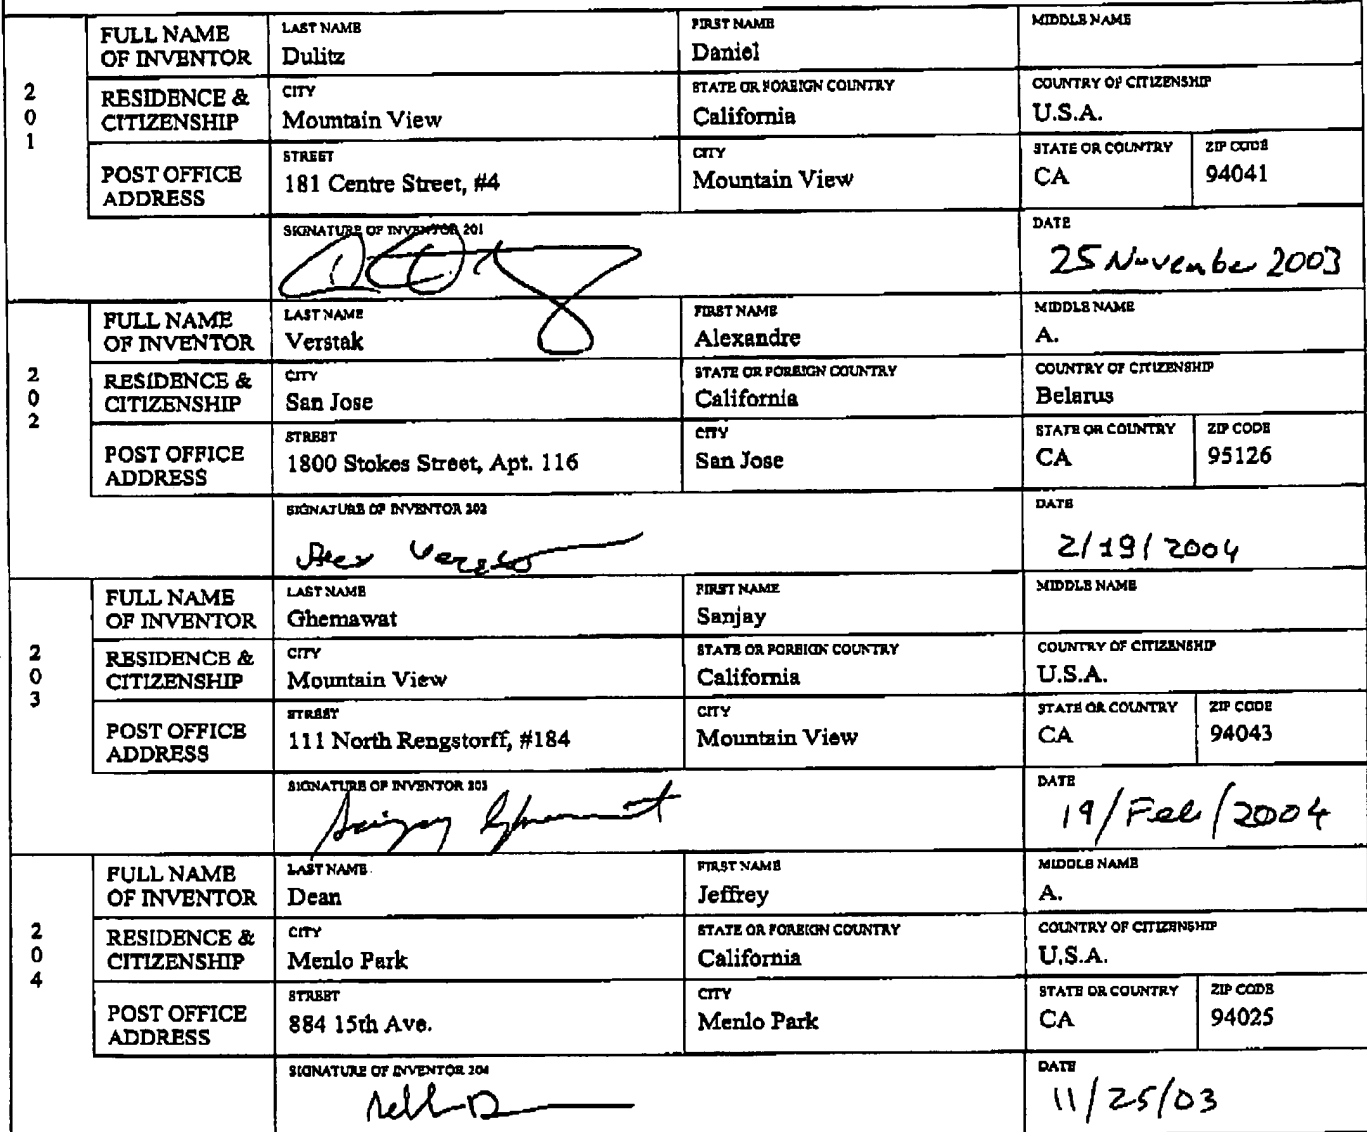 FULL NAME OF INVENTOR
LAST NAME
Dulitz
FIRST NAME
Daniel
MIDDLE NAME
201
RESIDENCE & CITIZENSHIP
CITY
Mountain View
STATE OR FOREIGN COUNTRY
California
COUNTRY OF CITIZENSHIP
U.S.A.
POST OFFICE ADDRESS
STREET
181 Centre Street, #4
CITY
Mountain View
STATE OR COUNTRY
CA
ZIP CODE
94041
SIGNATURE OF INVENTOR 201
DATE
25 November 2003
FULL NAME OF INVENTOR
LAST NAME
Verstak
FIRST NAME
Alexandre
MIDDLE NAME
A.
202
RESIDENCE & CITIZENSHIP
CITY
San Jose
STATE OR FOREIGN COUNTRY
California
COUNTRY OF CITIZENSHIP
Belarus
POST OFFICE ADDRESS
STREET
1800 Stokes Street, Apt. 116
CITY
San Jose
STATE OR COUNTRY
CA
ZIP CODE
95126
SIGNATURE OF INVENTOR 202
DATE
2/19/2004
FULL NAME OF INVENTOR
LAST NAME
Ghemawat
FIRST NAME
Sanjay
MIDDLE NAME
203
RESIDENCE & CITIZENSHIP
CITY
Mountain View
STATE OR FOREIGN COUNTRY
California
COUNTRY OF CITIZENSHIP
U.S.A.
POST OFFICE ADDRESS
STREET
111 North Rengstorff, #184
CITY
Mountain View
STATE OR COUNTRY
CA
ZIP CODE
94043
SIGNATURE OF INVENTOR 203
Sanjay Ghemawat
DATE
19/Feb/2004
FULL NAME OF INVENTOR
LAST NAME
Dean
FIRST NAME
Jeffrey
MIDDLE NAME
A.
204
RESIDENCE & CITIZENSHIP
CITY
Menlo Park
STATE OR FOREIGN COUNTRY
California
COUNTRY OF CITIZENSHIP
U.S.A.
POST OFFICE ADDRESS
STREET
884 15th Ave.
CITY
Menlo Park
STATE OR COUNTRY
CA
ZIP CODE
94025
SIGNATURE OF INVENTOR 204
DATE
11/25/03